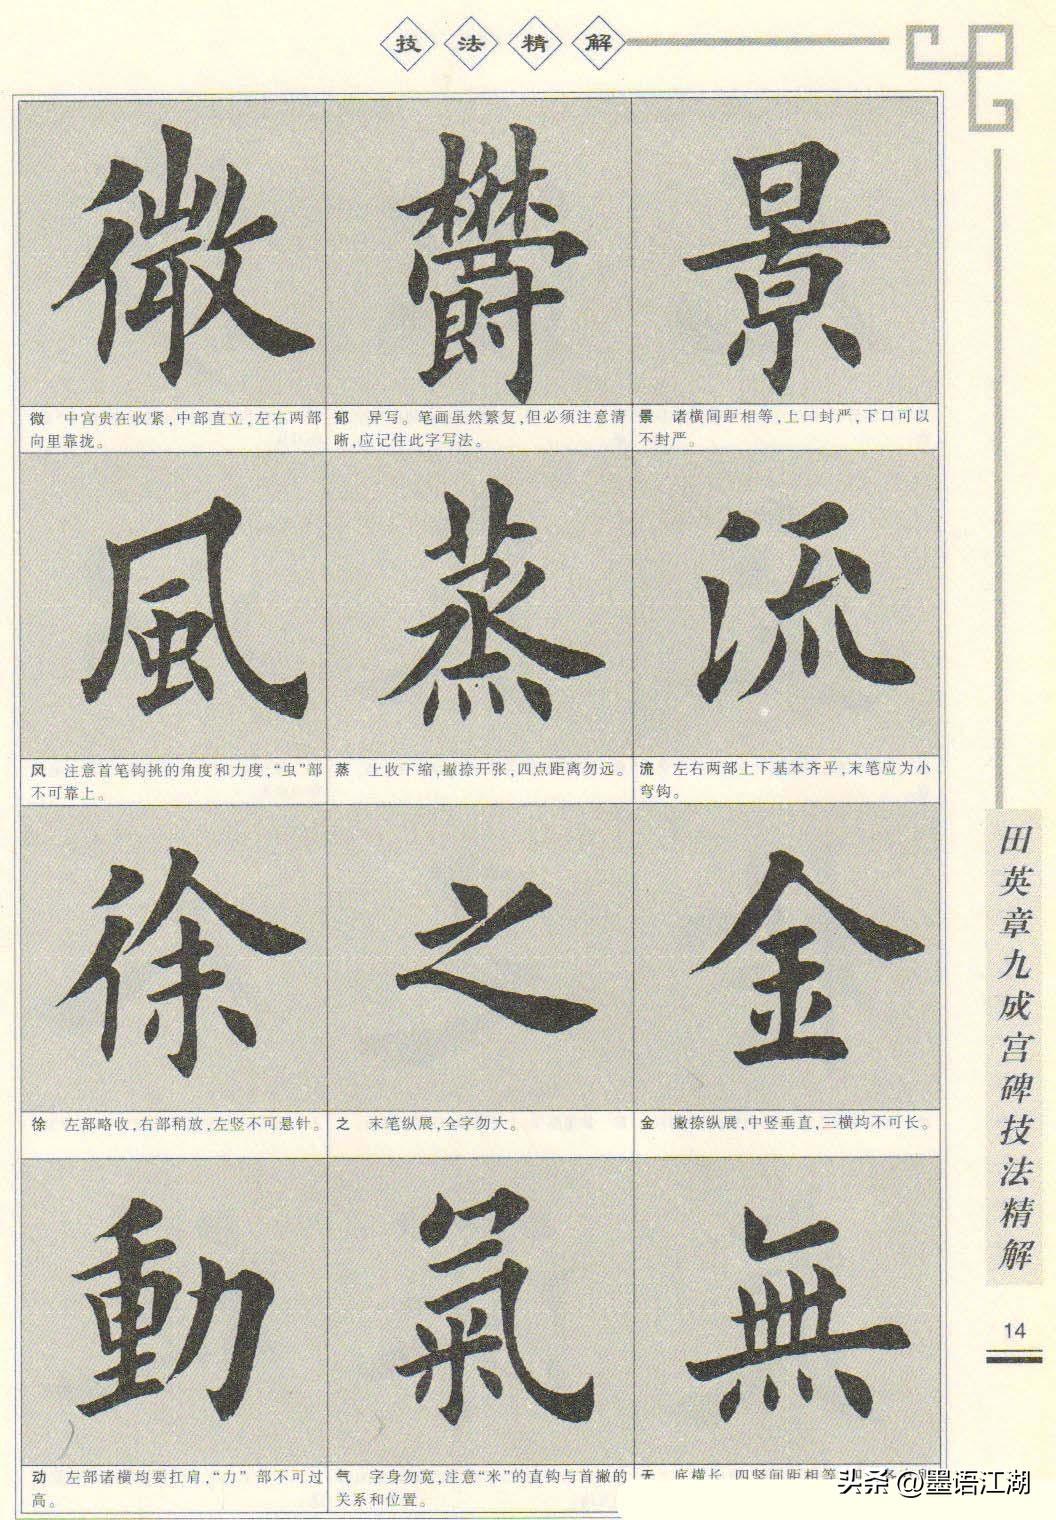 技法精解
微 鬱 景
微 中宫贵在收紧,中部直立,左右两部
向里靠拢。
郁 异写。笔画虽然繁复,但必须注意清
晰,应记住此字写法。
景 诸横间距相等,上口封严,下口可以
不封严。
風 蒸 流
风 注意首笔钩挑的角度和力度,“虫”部
不可靠上。
蒸 上收下缩,撇捺开张,四点距离勿远。
流 左右两部上下基本齐平,末笔应为小
弯钩。
徐 之 金
徐 左部略收,右部稍放,左竖不可悬针。
之 末笔纵展,全字勿大。
金 撇捺纵展,中竖垂直,三横均不可长。
動 氣 無
动 左部诸横均要扛肩,“力”部不可过
高。
气 字身勿宽,注意“米”的直钩与首撇的
关系和位置。
无 底横长,四竖间距相等
田英章九成宫碑技法精解
14
头条 @墨语江湖